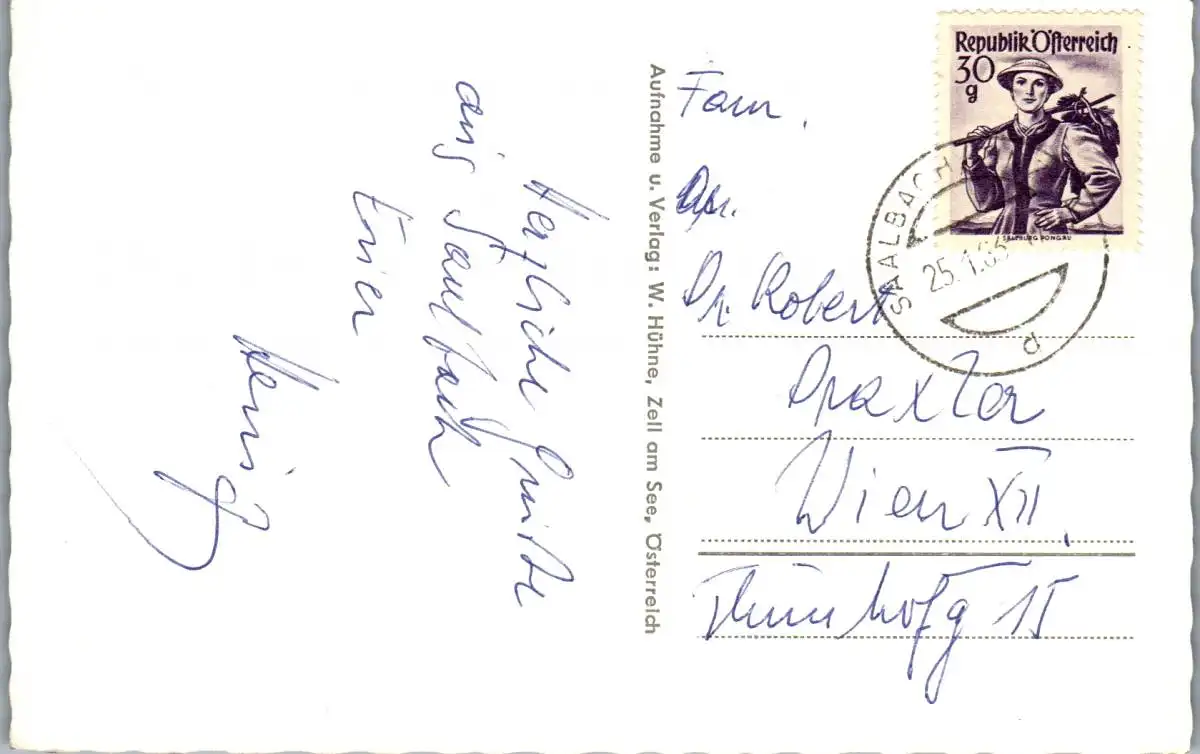 Herzliche Grüße
aus Saalbach
Euer
Aufnahme u. Verlag: W. Hühne, Zell am See, Österreich
Republik Österreich
30
g
SALZBURG PONGAU
SAALBACH
25.1.63
d
Fam.
Dr. Robert
Draxler
Wien XII.
15